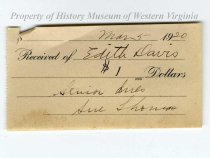 Property of History Museum of Western Virginia
Mar 5 1920
Received of Edith Davis
$1 Dollars
Senior Dues
Sue